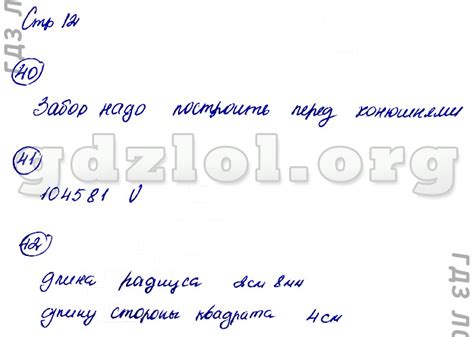 Стр 12
40
Забор надо построить перед конюшнями
41
gdzlol.org
104581 V
42
длина радиуса 2см 8мм
длину стороны квадрата 4см
ГДЗ ЛО
ГДЗ ЛО